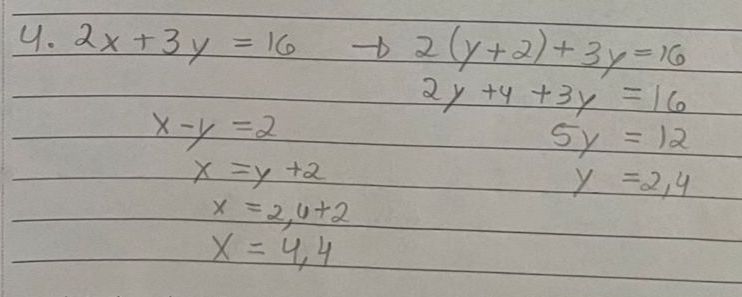 4. 2x + 3y = 16 → 2(y+2) + 3y = 16
2y + 4 + 3y = 16
x - y = 2
5y = 12
x = y + 2
y = 2,4
x = 2,4 + 2
x = 4,4